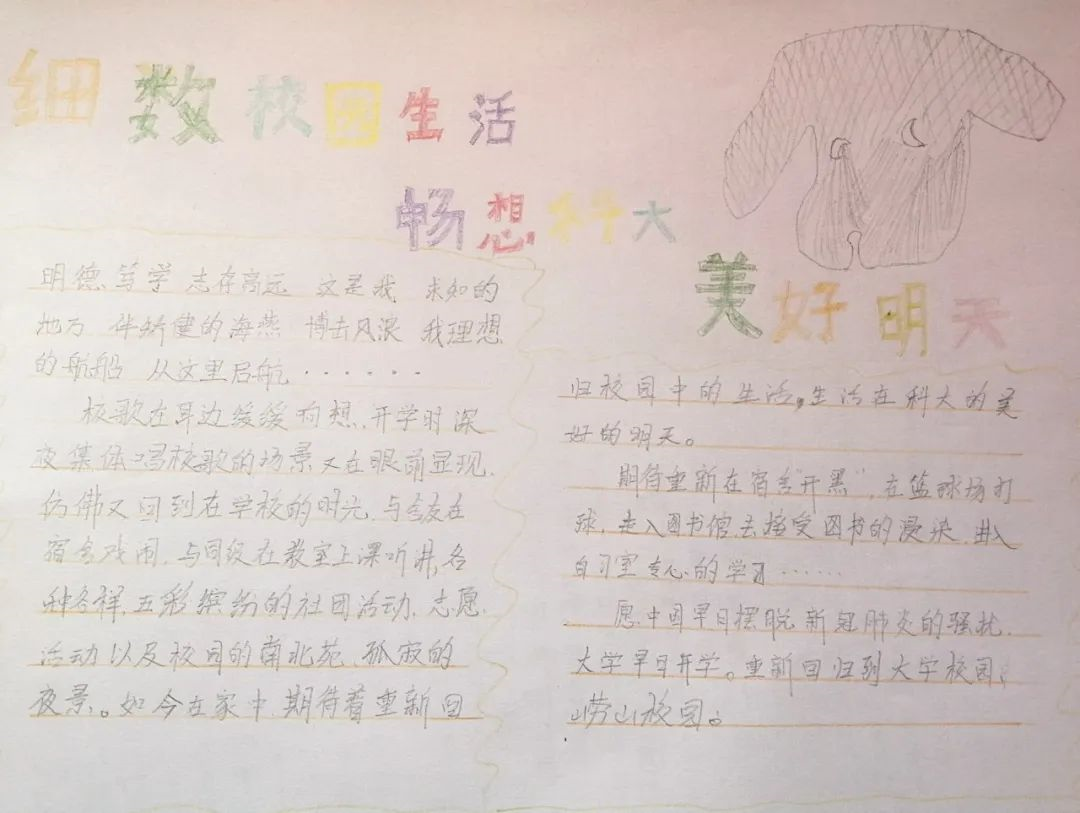 细数校园生活
畅想科大
美好明天
明德笃学 志存高远 这是我 求知的
地方 伴娇健的海燕 博击风浪 我理想
的航船 从这里启航······
校歌在耳边缓缓向想,开学时深
夜集体唱校歌的场景又在眼前显现,
仿佛又回到在学校的时光,与舍友在
宿舍戏闹,与同级在教室上课听讲,各
种各样,五彩缤纷的社团活动,志愿
活动以及校园的南北苑,孤寂的
夜景。如今在家中,期待着重新回
归校园中的生活,生活在科大的美
好的明天。
期待重新在宿舍"开黑",在篮球场打
球,走入图书馆,去接受图书的浸染,进入
自习室专心的学习······
愿中国早日摆脱新冠肺炎的骚扰,
大学早日开学。重新回归到大学校园,
崂山校园。